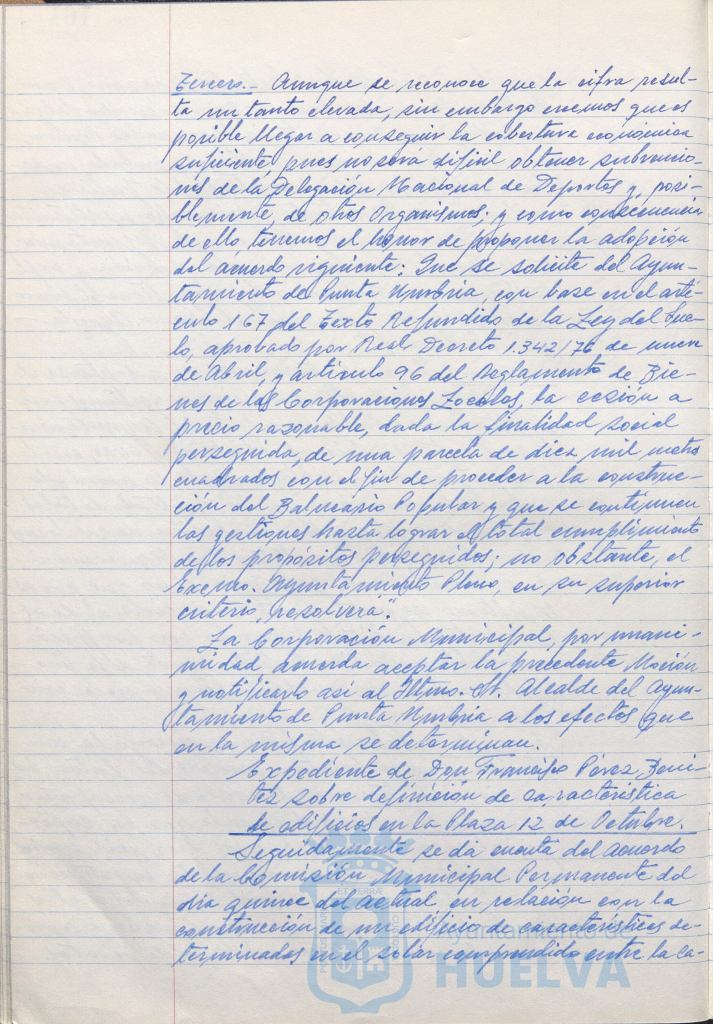 Tercero.- Aunque se reconoce que la cifra resul-
ta un tanto elevada, sin embargo creemos que es
posible llegar a conseguir la cobertura económica
suficiente, pues no será difícil obtener subvencio-
nes de la Delegación Nacional de Deportes y, posi-
blemente, de otros Organismos; y como consecuencia
de ello tenemos el honor de proponer la adopción
del acuerdo siguiente: Que se solicite del Ayun-
tamiento de Punta Umbría, con base en el artí-
culo 167 del Texto Refundido de la Ley del Sue-
lo, aprobado por Real Decreto 1.342/76 de nueve
de Abril, y artículo 96 del Reglamento de Bie-
nes de las Corporaciones Locales, la cesión a
precio razonable, dada la finalidad social
perseguida, de una parcela de diez mil metros
cuadrados con el fin de proceder a la construc-
ción del Balneario Popular y que se continuen
las gestiones hasta lograr el total cumplimiento
de los propósitos perseguidos; no obstante, el
Excmo. Ayuntamiento Pleno, en su superior
criterio, resolverá".
La Corporación Municipal, por unani-
midad, acuerda aceptar la precedente Moción
y notificarlo así al Iltmo. Sr. Alcalde del Ayun-
tamiento de Punta Umbría a los efectos que
en la misma se determinan.
Expediente de Don Francisco Pérez Beni-
tez sobre definición de característica
de edificios en la Plaza 12 de Octubre.
Seguidamente se da cuenta del acuerdo
de la Comisión Municipal Permanente del
día quince del actual en relación con la
construcción de un edificio de características de-
terminadas en el solar comprendido entre la ca-
HUELVA